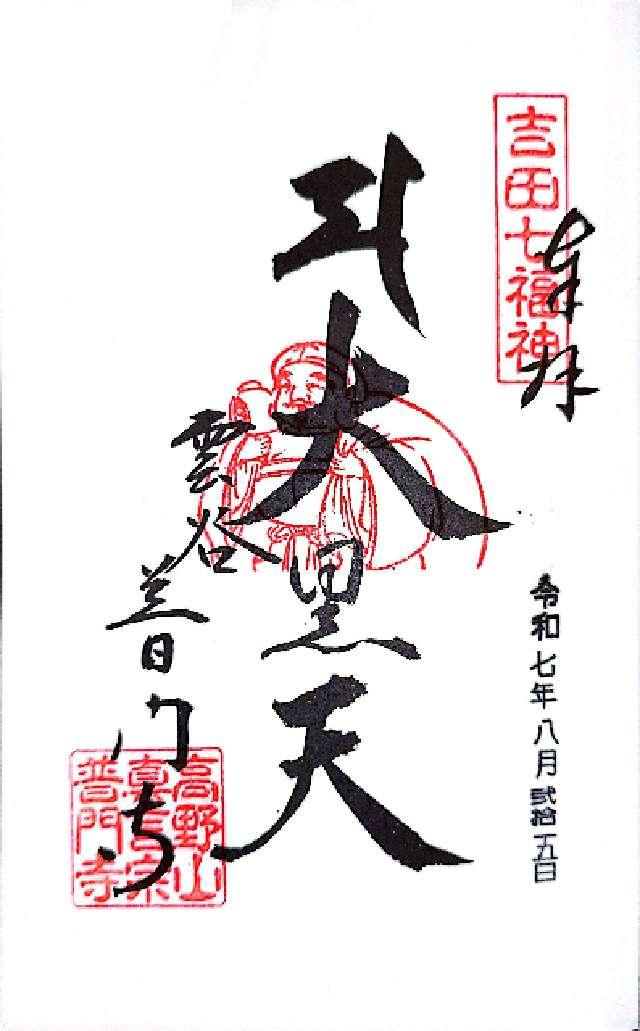 吉田七福神
奉拝
令和七年八月弐拾五日
大黒天
雲谷
普門寺
高野山
真言宗
普門寺